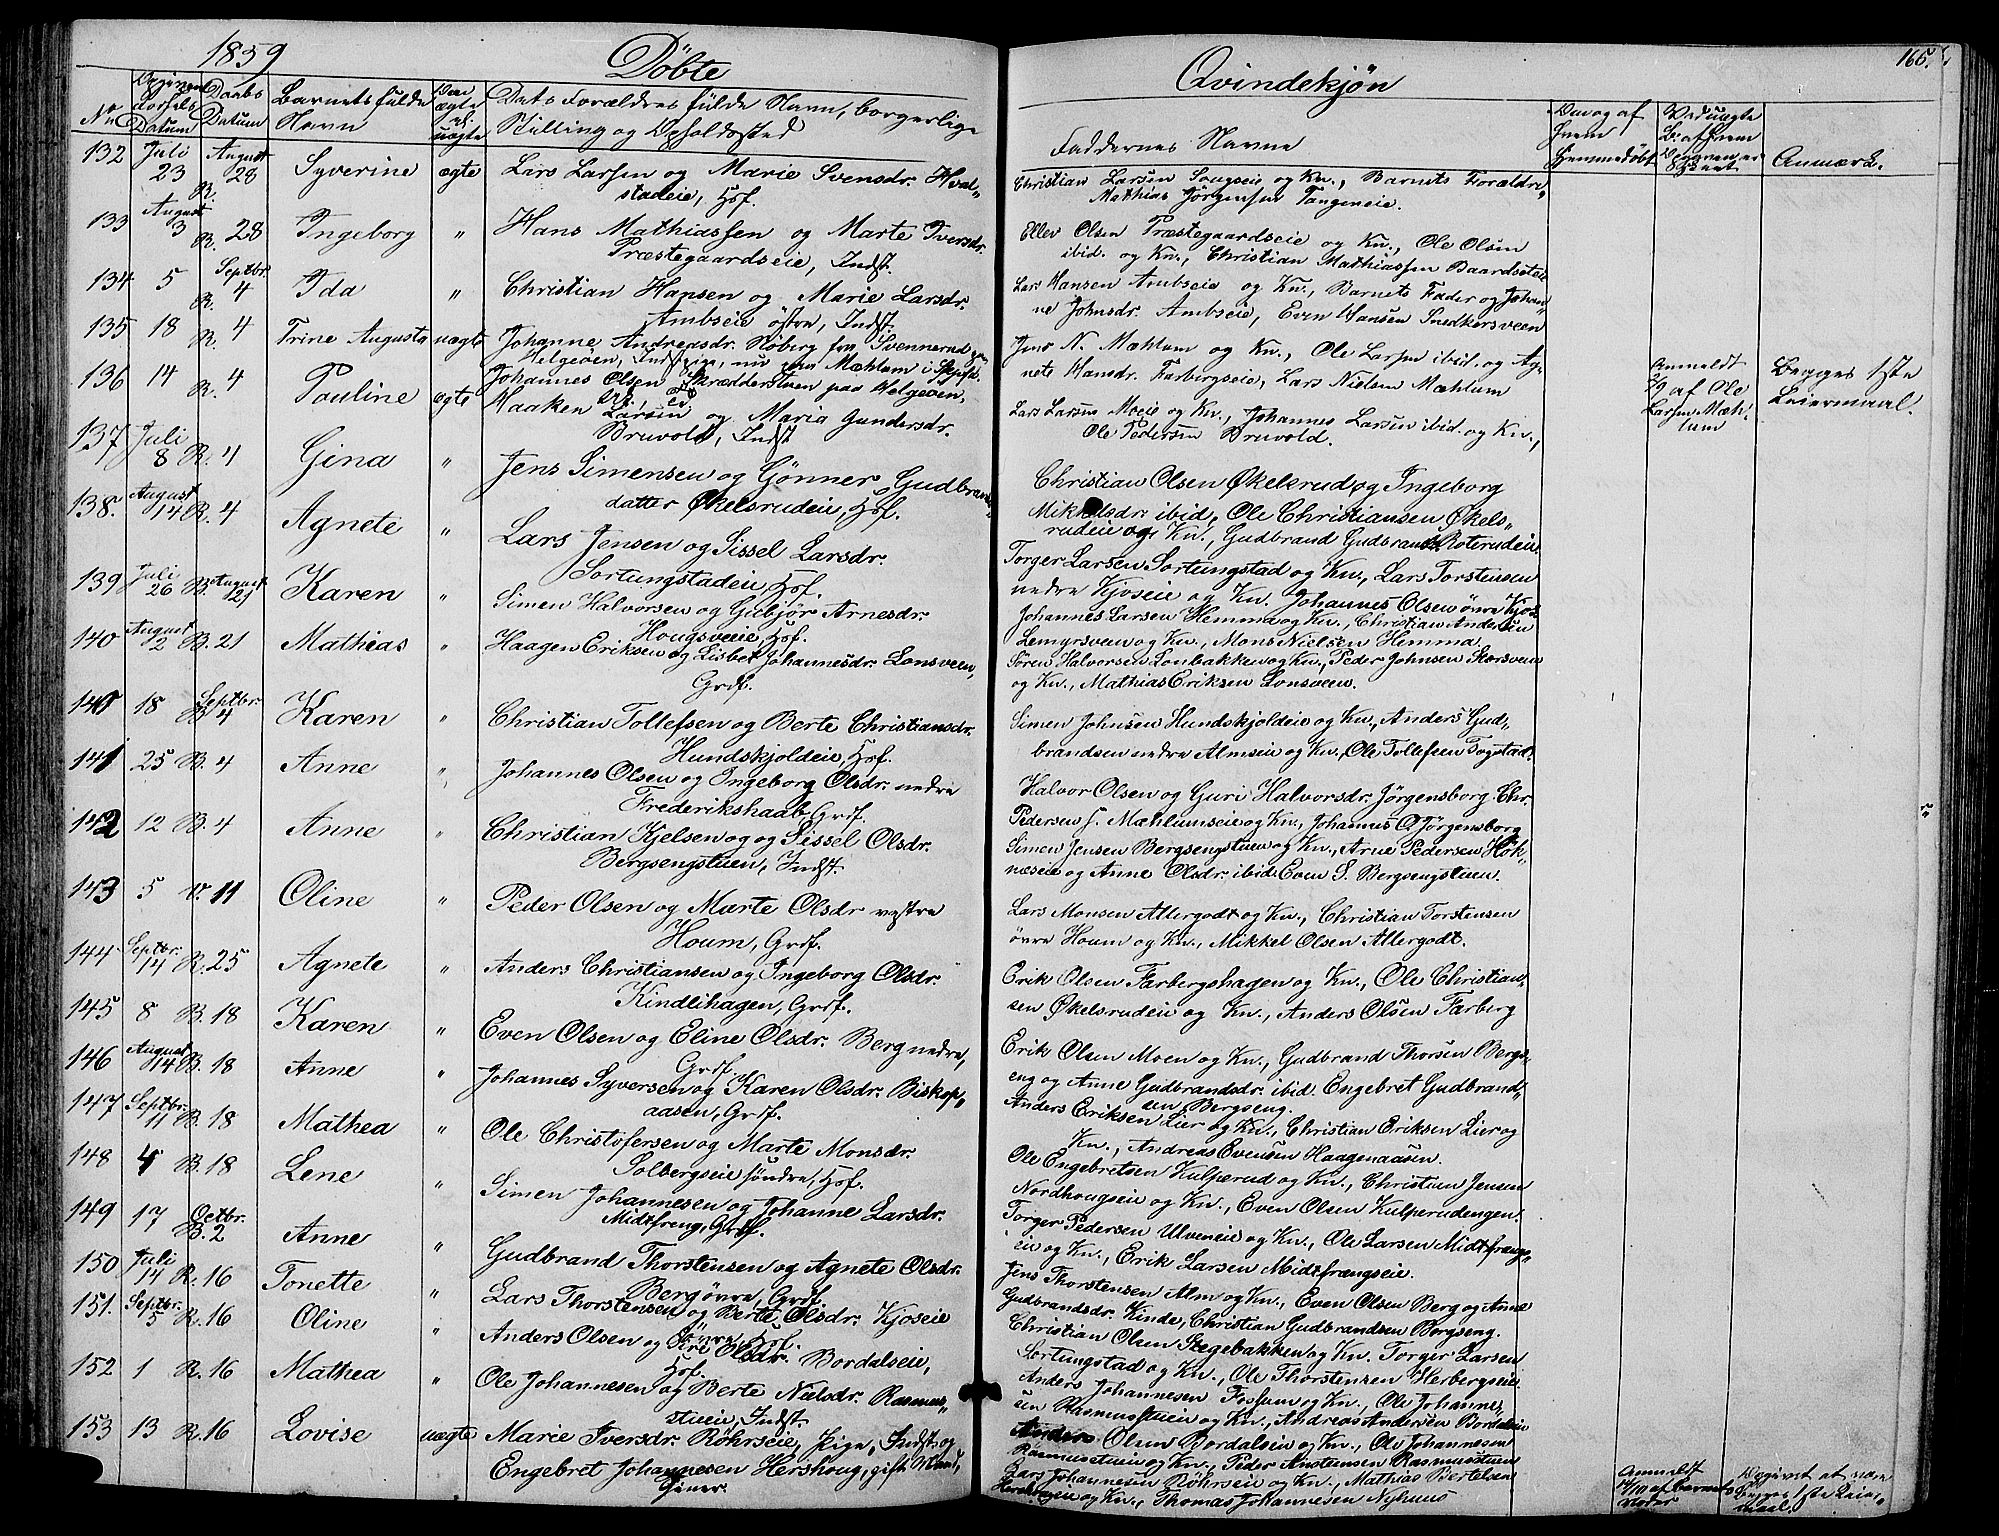 1859 Döbte
No Opgiven Fødsels Datum Daabs Datum Barnets fulde Navn Om ægte el. uægte Dets Forældres fulde Navn, borgerlige Stilling og Opholdssted
132 Juli 23 R. August 28 Syverine ægte Lars Larsen og Marie Svensdr. Hval-
stadeie, Hsf.
133 August 3 R. 28 Ingeborg " Hans Mathiassen og Marte Iversdr.
Præstegaardseie, Indst.
134 5 R. Septbr. 4 Ida " Christian Hansen og Marie Larsdr.
Ambseie östre, Indst.
135 18 R. 4 Trine Augusta uægte Johanne Andreasdr. Röberg fra Svennerud
Helgeöen, nu paa Mæhlum
Johannes Olsen Skrædderstuen paa Helgeöen,
136 14 R. 4 Pauline ægte Haaken Larsen og Maria Gundersdr.
Bruvold, Indst
137 Juli 8 R. 4 Gina " Jens Simensen og Gönner Gudbrands-
datter Økelsrudeie, Hsf.
138. August 14 R. 4 Agnete " Lars Jensen og Sissel Larsdr.
Sortungstadeie, Hsf.
139 Juli 26 B. August 21 Karen " Simen Halvorsen og Gubjör Arnesdr.
Hougsveie, Hsf.
140 August 2 B. 21 Mathias " Haagen Eriksen og Lisbet Johannesdr. Lonsveen,
Grdf.
140 18 B. Septbr. 4 Karen " Christian Tollefsen og Berte Christiansdr.
Hundskjoldeie, Hsf.
141 25 B. 4 Anne " Johannes Olsen og Ingeborg Olsdr. nedre
Frederikshaab, Grdf.
142 12 B. 4 Anne " Christian Kjelsen og og Sissel Olsdr.
Bergsengstuen, Indst.
143 5 V. 11 Oline " Peder Olsen og Marte Olsdr vestre
Houm, Grdf.
144 Septbr. 14 R. 25 Agnete " Anders Christiansen og Ingeborg Olsdr.
Kindlihagen, Grdf.
145 8 B. 18 Karen " Even Olsen og Eline Olsdr. Berg nedre,
Grdf.
146 August 14 B. 18 Anne " Johannes Syversen og Karen Olsdr. Biskop-
aasen, Grdf.
147 Septbr. 11 B. 18 Mathea " Ole Christofersen og Marte Monsdr.
Solbergseie söndre, Hsf.
148 4 B. 18 Lene " Simen Johannesen og Johanne Larsdr.
Midtfreng, Grdf.
149 17 Octbr. B. 2 Anne " Gudbrand Thorstensen og Agnete Olsdr.
Berg övre, Grdf
150 Juli 14 R. 16 Tonette Lars Thorstensen og Berte Olsdr. Kjoseie
övre, Hsf.
151. Septbr. 5 R. 16 Oline " Anders Olsen og Kri Olsdr. Bordalseie,
Hsf.
152 1 R. 16 Mathea " Ole Johannesen og Berte Nielsdr. Rasmus-
stueie, Indst.
153 13 R. 16 Lovise uægte Marie Iversdr. Röhrseie, Pige, Indst og
Engebret Johannesen Hershoug, gift Mand,
Qvindekjön 166.
Faddernes Navne Hjemmedöbt Anmærk.
Christian Larsen Sougseie og Kn., Barnets Forældre,
Mathias Jörgensen Tangeneie.
Ellev Olsen Præstegaardseie og Kn., Ole Olsen
ibid. og Kn., Christian Mathiassen Baardseteie
Lars Hansen Ambseie og Kn., Barnets Fader og Johan-
ne Johnsdr. Ambseie, Even Hansen Snedkersveen
Jens N. Mæhlum og Kn., Ole Larsen ibid. og Ag-
nete Hansdr. Farbergseie, Lars Nielsen Mæhlum
Anmeldt 2/9 af Ole Larsen Mæh-
lum
Begges 1ste Leiermaal.
Lars Larsen Moeie og Kn., Johannes Larsen ibid. og Kn.,
Ole Pedersen Bruvold.
Christian Olsen Økelsrud og Ingeborg
Mikkelsdr. ibid., Ole Christiansen Økels-
rudeie og Kn., Gudbrand Gudbrands. Roterudeie
Torger Larsen Sortungstad og Kn., Lars Torstensen
nedre Kjoseie og Kn. Johannes Olsen övre Kjos
Johannes Larsen Hemma og Kn., Christian Andersen
Lemyrsveen og Kn., Mons Nielsen Hemma
Sören Halvorsen Lonbakken og Kn., Peder Johnsen Skarsveen
og Kn., Mathias Eriksen Lonsveen.
Simen Johnsen Hundskjoldeie og Kn., Anders Gud-
brandsen nedre Almseie og Kn., Ole Tollefsen Fogstad.
Halvor Olsen og Guri Halvorsdr. Jörgensborg. Chr.
Pedersen S. Mæhlumseie og Kn., Johannes O. Jörgensborg
Simen Jensen Bergsengstuen og Kn., Arne Pedersen Hök-
næseie og Anne Olsdr. ibid. Even S. Bergsengstuen.
Lars Monsen Allergodt og Kn., Christian Torstensen
övre Houm og Kn., Mikkel Olsen Allergodt.
Erik Olsen Farbergshagen og Kn., Ole Christian-
sen Økelsrudeie og Kn., Anders Olsen Farberg
Erik Olsen Moen og Kn., Gudbrand Thorsen Bergs-
eng og Anne Gudbrandsdr. ibid. Engebret Gudbrand-
sen Bergseng.
Anders Eriksen Lier og Kn., Christian Eriksen Lier og
Kn., Andreas Evensen Haagenaasen.
Ole Engebretsen Kulperud og Kn., Christian Jensen
Nordhougseie og Kn., Even Olsen Kulperudengen.
Torger Pedersen Ulveneie og Kn., Ole Larsen Midtfrengs-
eie og Kn., Erik Larsen Midtfrængseie.
Jens Thorstensen Alm og Kn., Even Olsen Berg og Anne
Gudbrandsdr. Kinde, Christian Gudbrandsen Bergseng.
Christian Olsen Stegebakken og Kn. Torger Larsen
Sortungstad og Kn., Ole Thorstensen Herbergseie.
Anders Johannesen Fossum og Kn., Ole Johanne-
sen Rasmusstueie og Kn., Andreas Andersen Bordaleie
Olsen Bordalseie og Kn., Ole Johannesen
Rasmusstueie og Kn., Peder Anstensen Rasmusstuen
Lars Johannesen Röhrseie og Kn., Mathias Bertelsen
Hershougeie og Kn., Thomas Johannesen Nyhuus